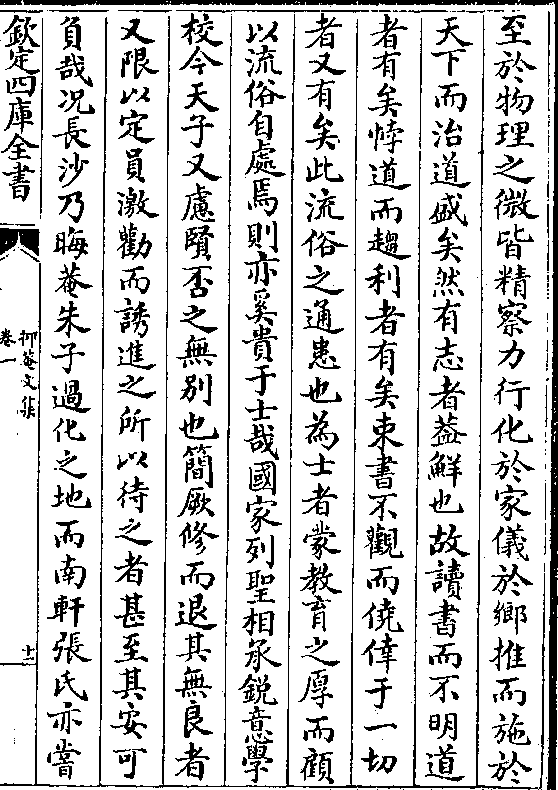 至於物理之微皆精察力行化於家儀於鄉推而施於
天下而治道盛矣然有志者葢鮮也故讀書而不明道
者有矣悖道而趨利者有矣束書不觀而僥倖于一切
者又有矣此流俗之通患也為士者蒙教育之厚而顧
以流俗自處焉則亦奚貴于士哉國家列聖相承鋭意學
校今天子又慮賢否之無別也簡厥修而退其無良者
又限以定員激勸而誘進之所以待之者甚至其安可
負哉况長沙乃晦菴朱子過化之地而南軒張氏亦嘗
欽定四庫全書
抑菴文集
卷一
十二